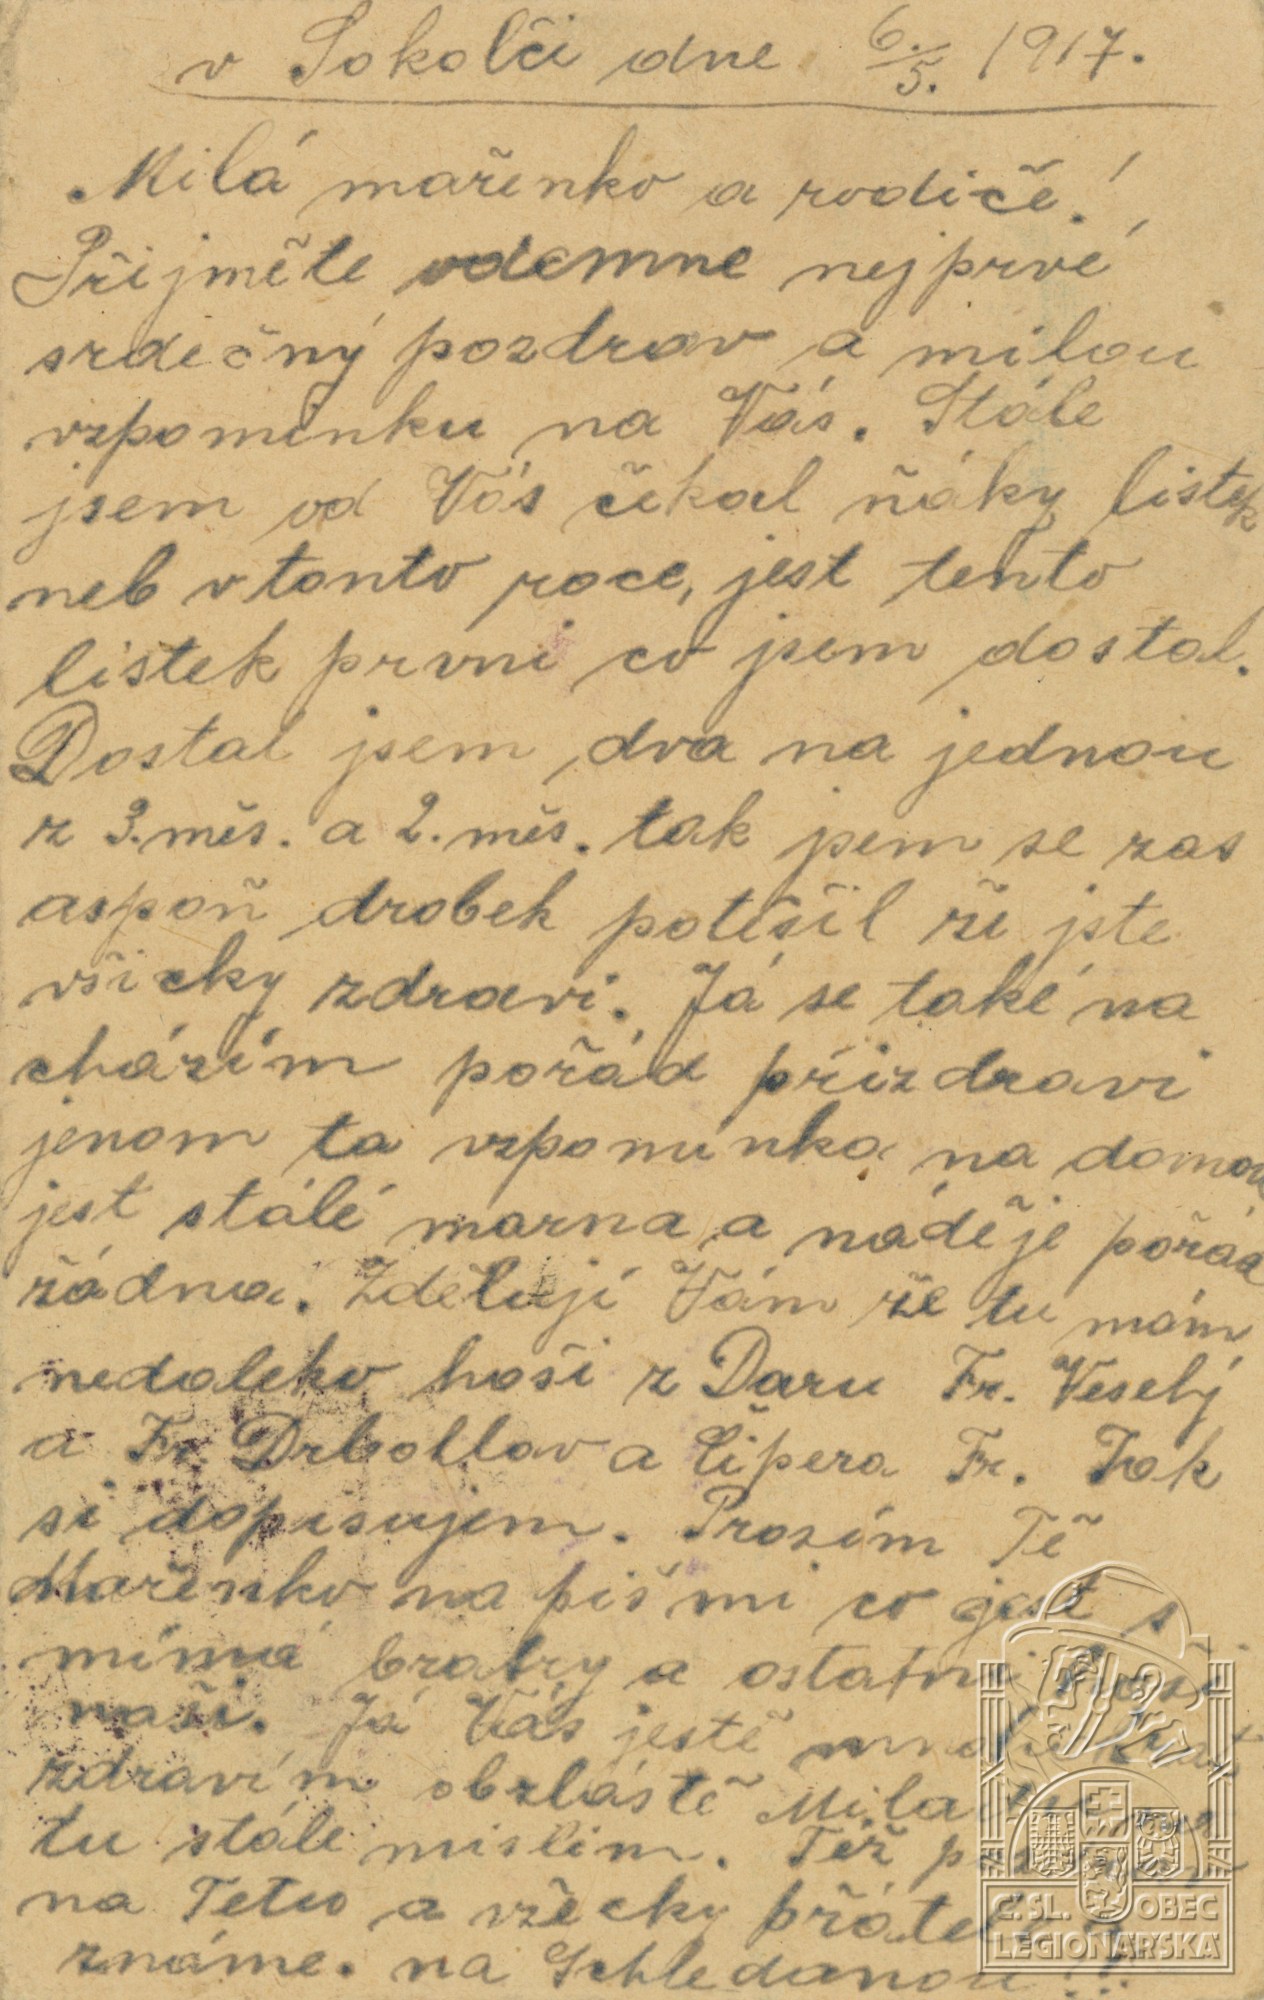 v Sokolči dne 6./5. 1917.
Milá mařenko a rodiče!
Přijměte odemne nejprvé
srdečný pozdrav a milou
vzpomínku na Vás. Stále
jsem od Vás čekal ňáky listek
neb v tonto roce, jest tento
listek prvni co jsem dostal.
Dostal jsem dva na jednou
z 3. měs. a 2. měs. tak jsem se zas
aspoň drobek potěšil že jste
všicky zdravi. Já se také na
cházím pořád přizdravi
jenom ta vzpomínka na domov
jest stálé marna a náděje pořád
žádna. Zděluji Vám že tu mám
nedaleko hoši z Daru Fr. Veselý
a Fr. Drbohlav a Čipera Fr. Tak
si dopisujem. Prosím Tě
Mařenko na piš mi co jest s
mimá bratry a ostatni hoši
naši. Já Vás jestě mnoho krat
zdravím obzlástě
tu stále mislim. Též
na Tetu a všecky přátele a
známe. na Schledanou!!
Č. SL. OBEC
LEGIONÁŘSKÁ